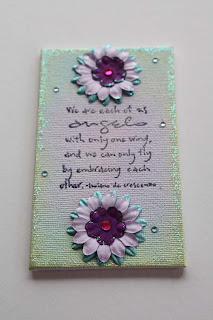 We are each of us
angels
with only one wing,
and we can only fly
by embracing each
other. -luciano de crescenzo